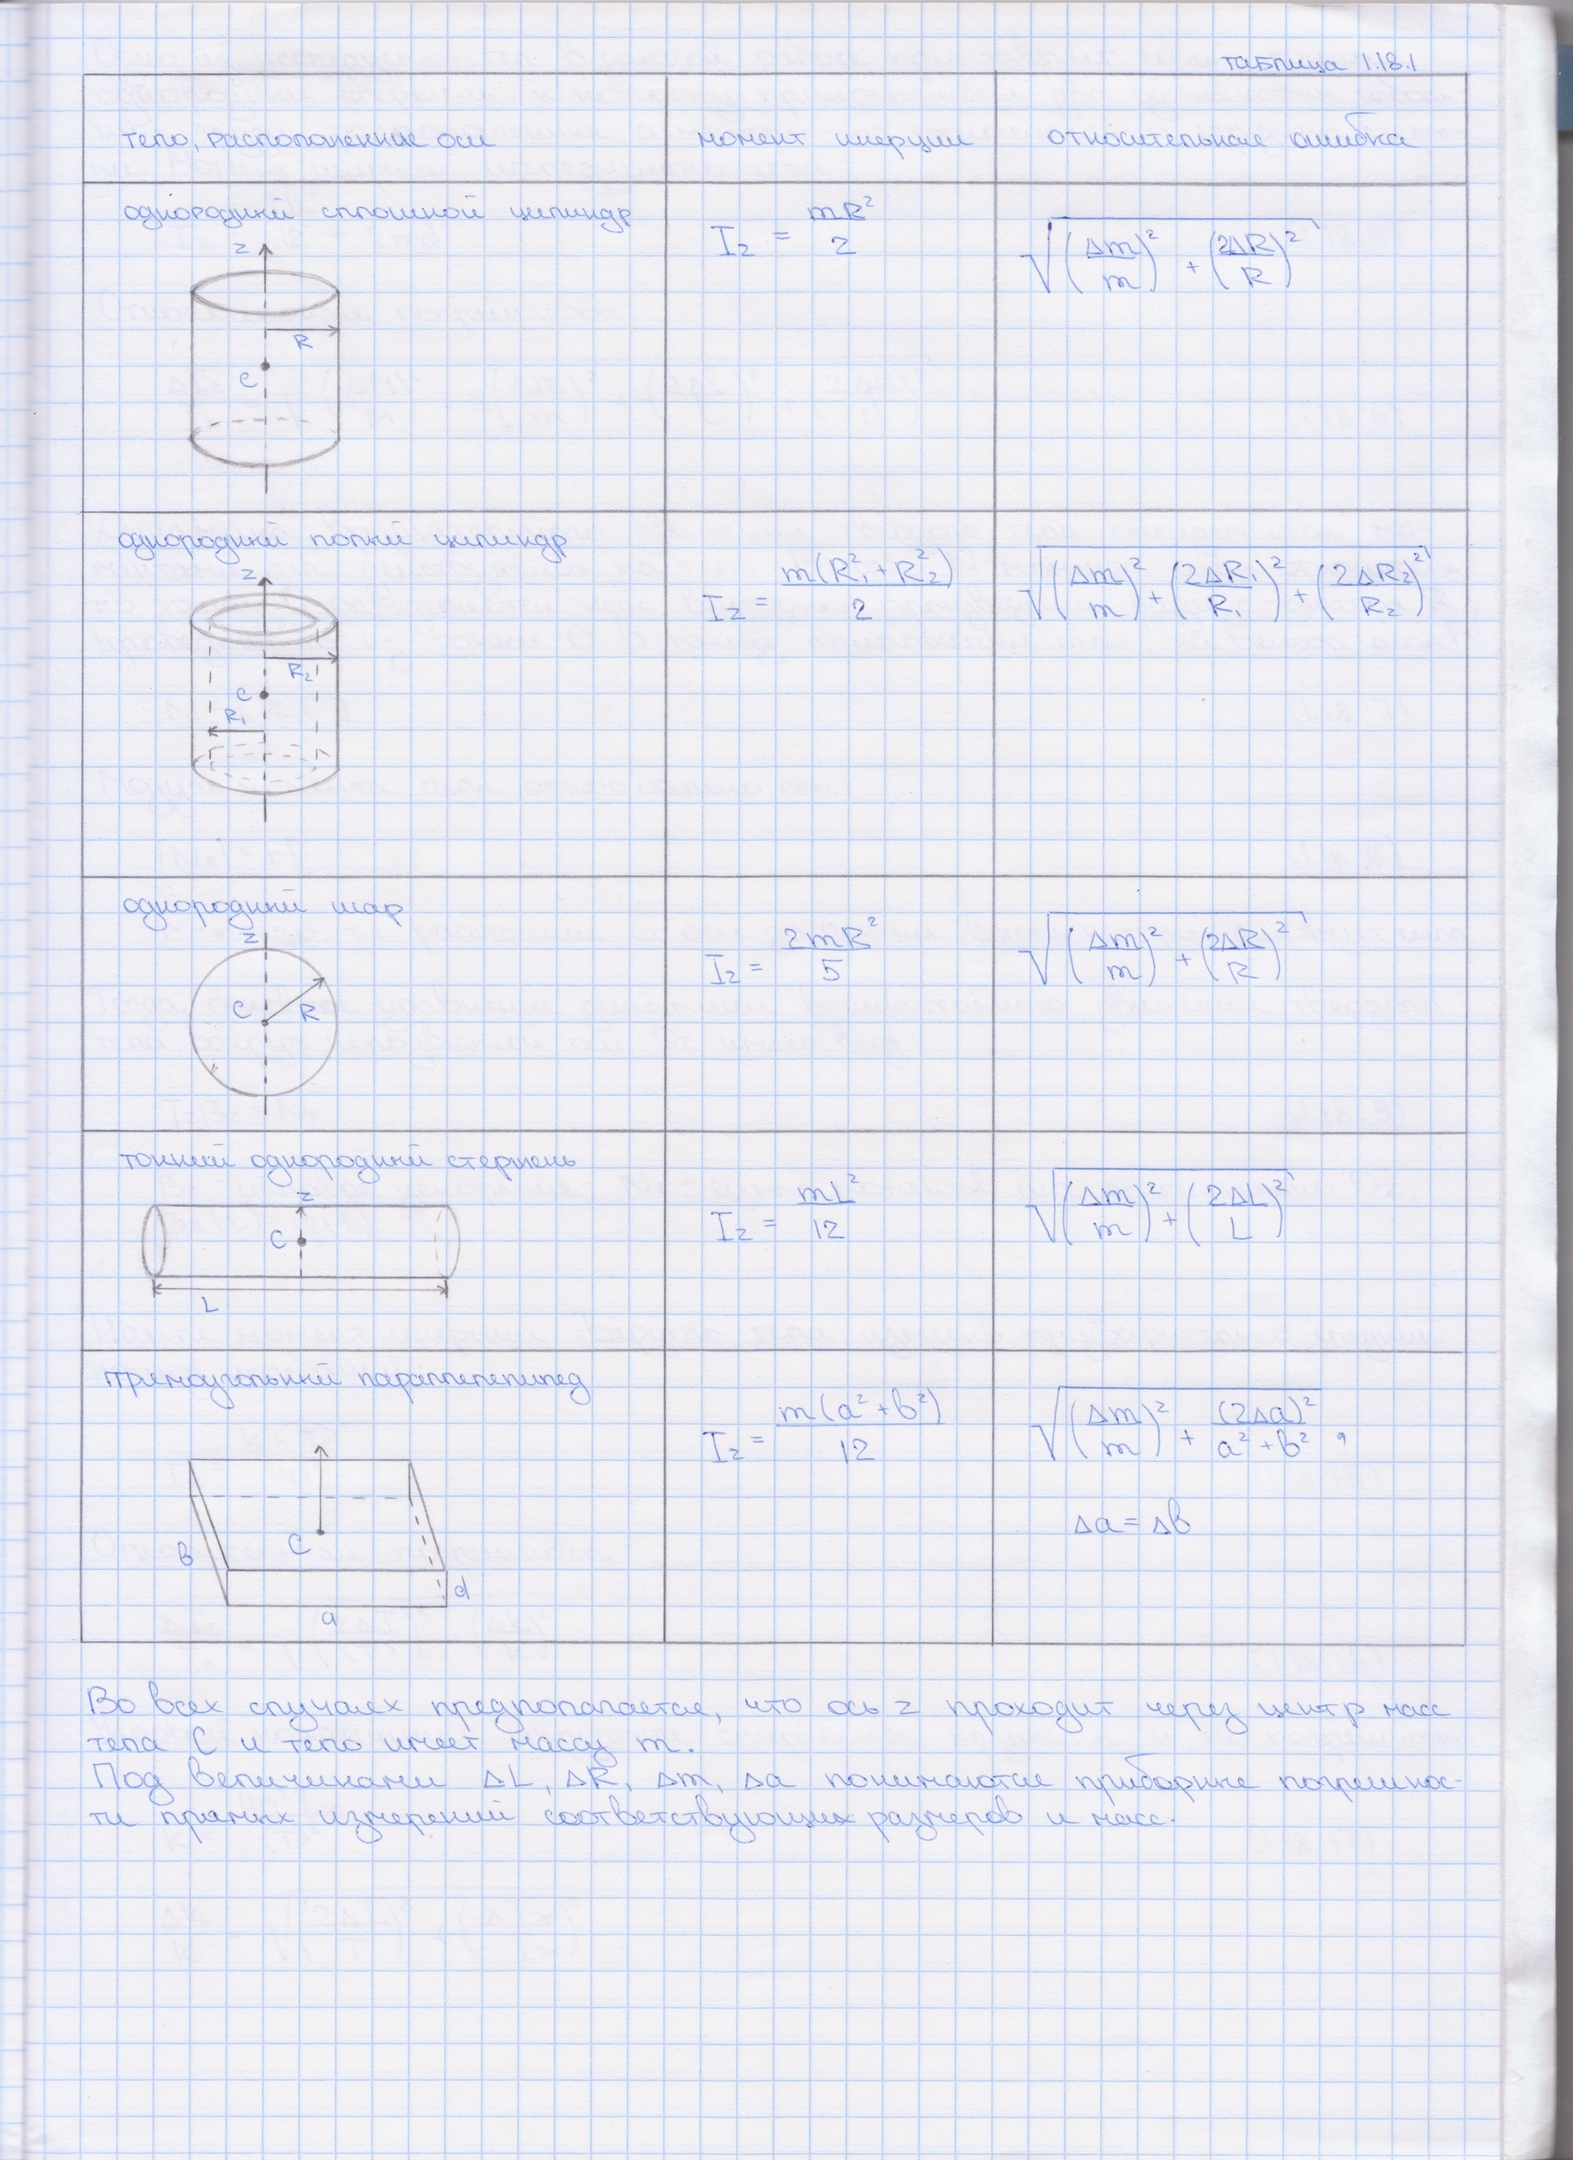 таблица 1.18.1
тело, расположение оси момент инерции относительная ошибка
однородный сплошной цилиндр
I_z = mR²/2 √((Δm/m)² + (2ΔR/R)²)
z
R
C
однородный полый цилиндр
I_z = m(R₁² + R₂²)/2 √((Δm/m)² + (2ΔR₁/R₁)² + (2ΔR₂/R₂)²)
z
R₂
C
R₁
однородный шар
I_z = 2mR²/5 √((Δm/m)² + (2ΔR/R)²)
z
C R
тонкий однородный стержень
I_z = mL²/12 √((Δm/m)² + (2ΔL/L)²)
z
C
L
прямоугольный параллелепипед
I_z = m(a² + b²)/12 √((Δm/m)² + (2Δa)²/(a² + b²)),
Δa = Δb
C
b
d
a
Во всех случаях предполагается, что ось z проходит через центр масс
тела C и тело имеет массу m.
Под величинами ΔL, ΔR, Δm, Δa понимаются приборные погрешнос-
ти прямых измерений соответствующих размеров и масс.